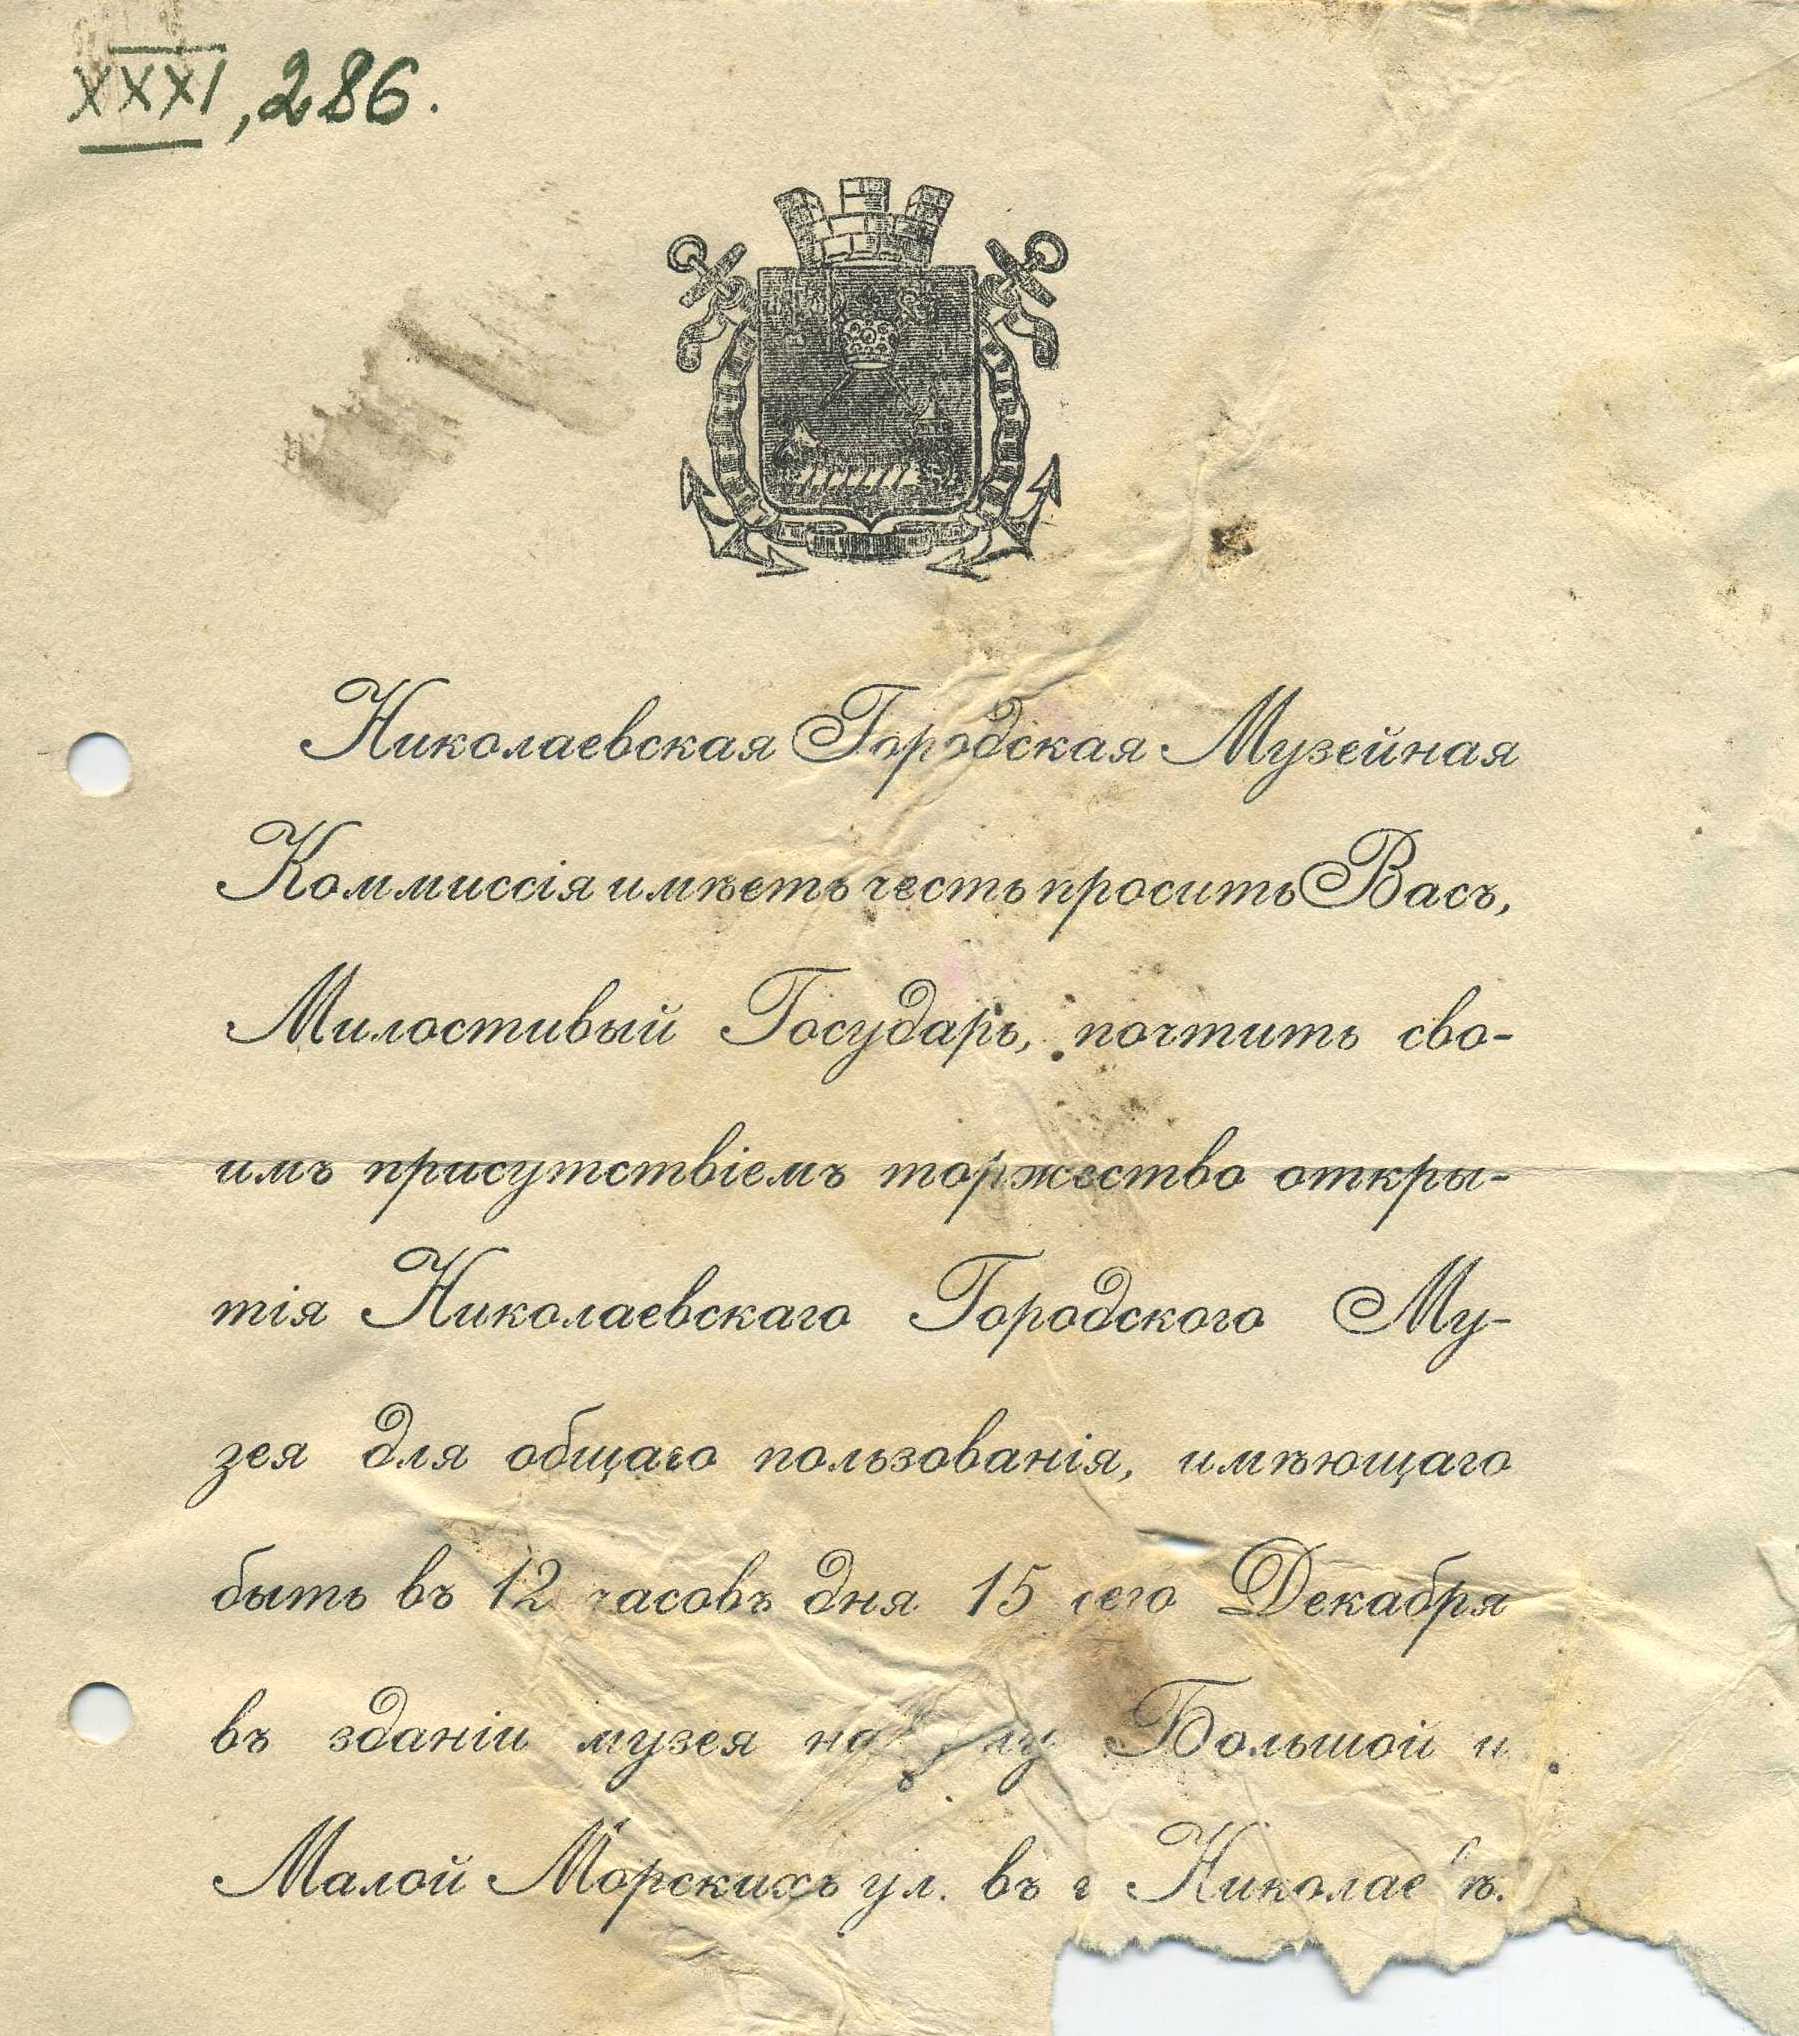 XXXI, 286.
Николаевская Городская Музейная
Коммиссія имѣетъ честь просить Васъ,
Милостивый Государь, почтить сво-
имъ присутствіемъ торжество откры-
тія Николаевскаго Городского Му-
зея для общаго пользованія, имѣющаго
быть въ 12 часовъ дня 15 сего Декабря
въ зданіи музея на Большой и
Малой Морскихъ ул. въ г Николаевѣ.